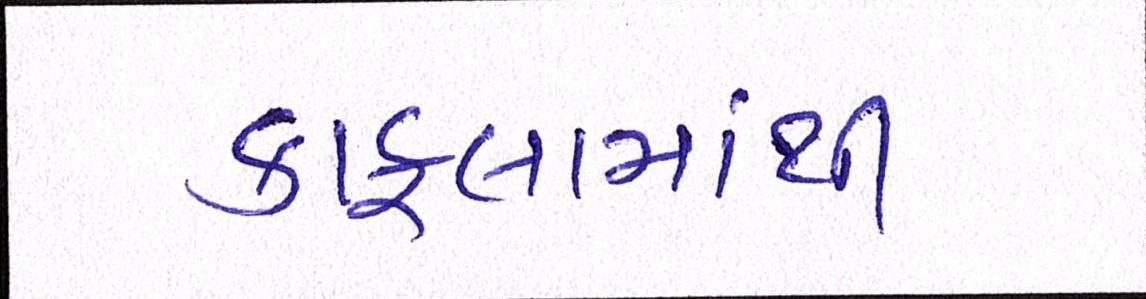 કાફલામાંથી